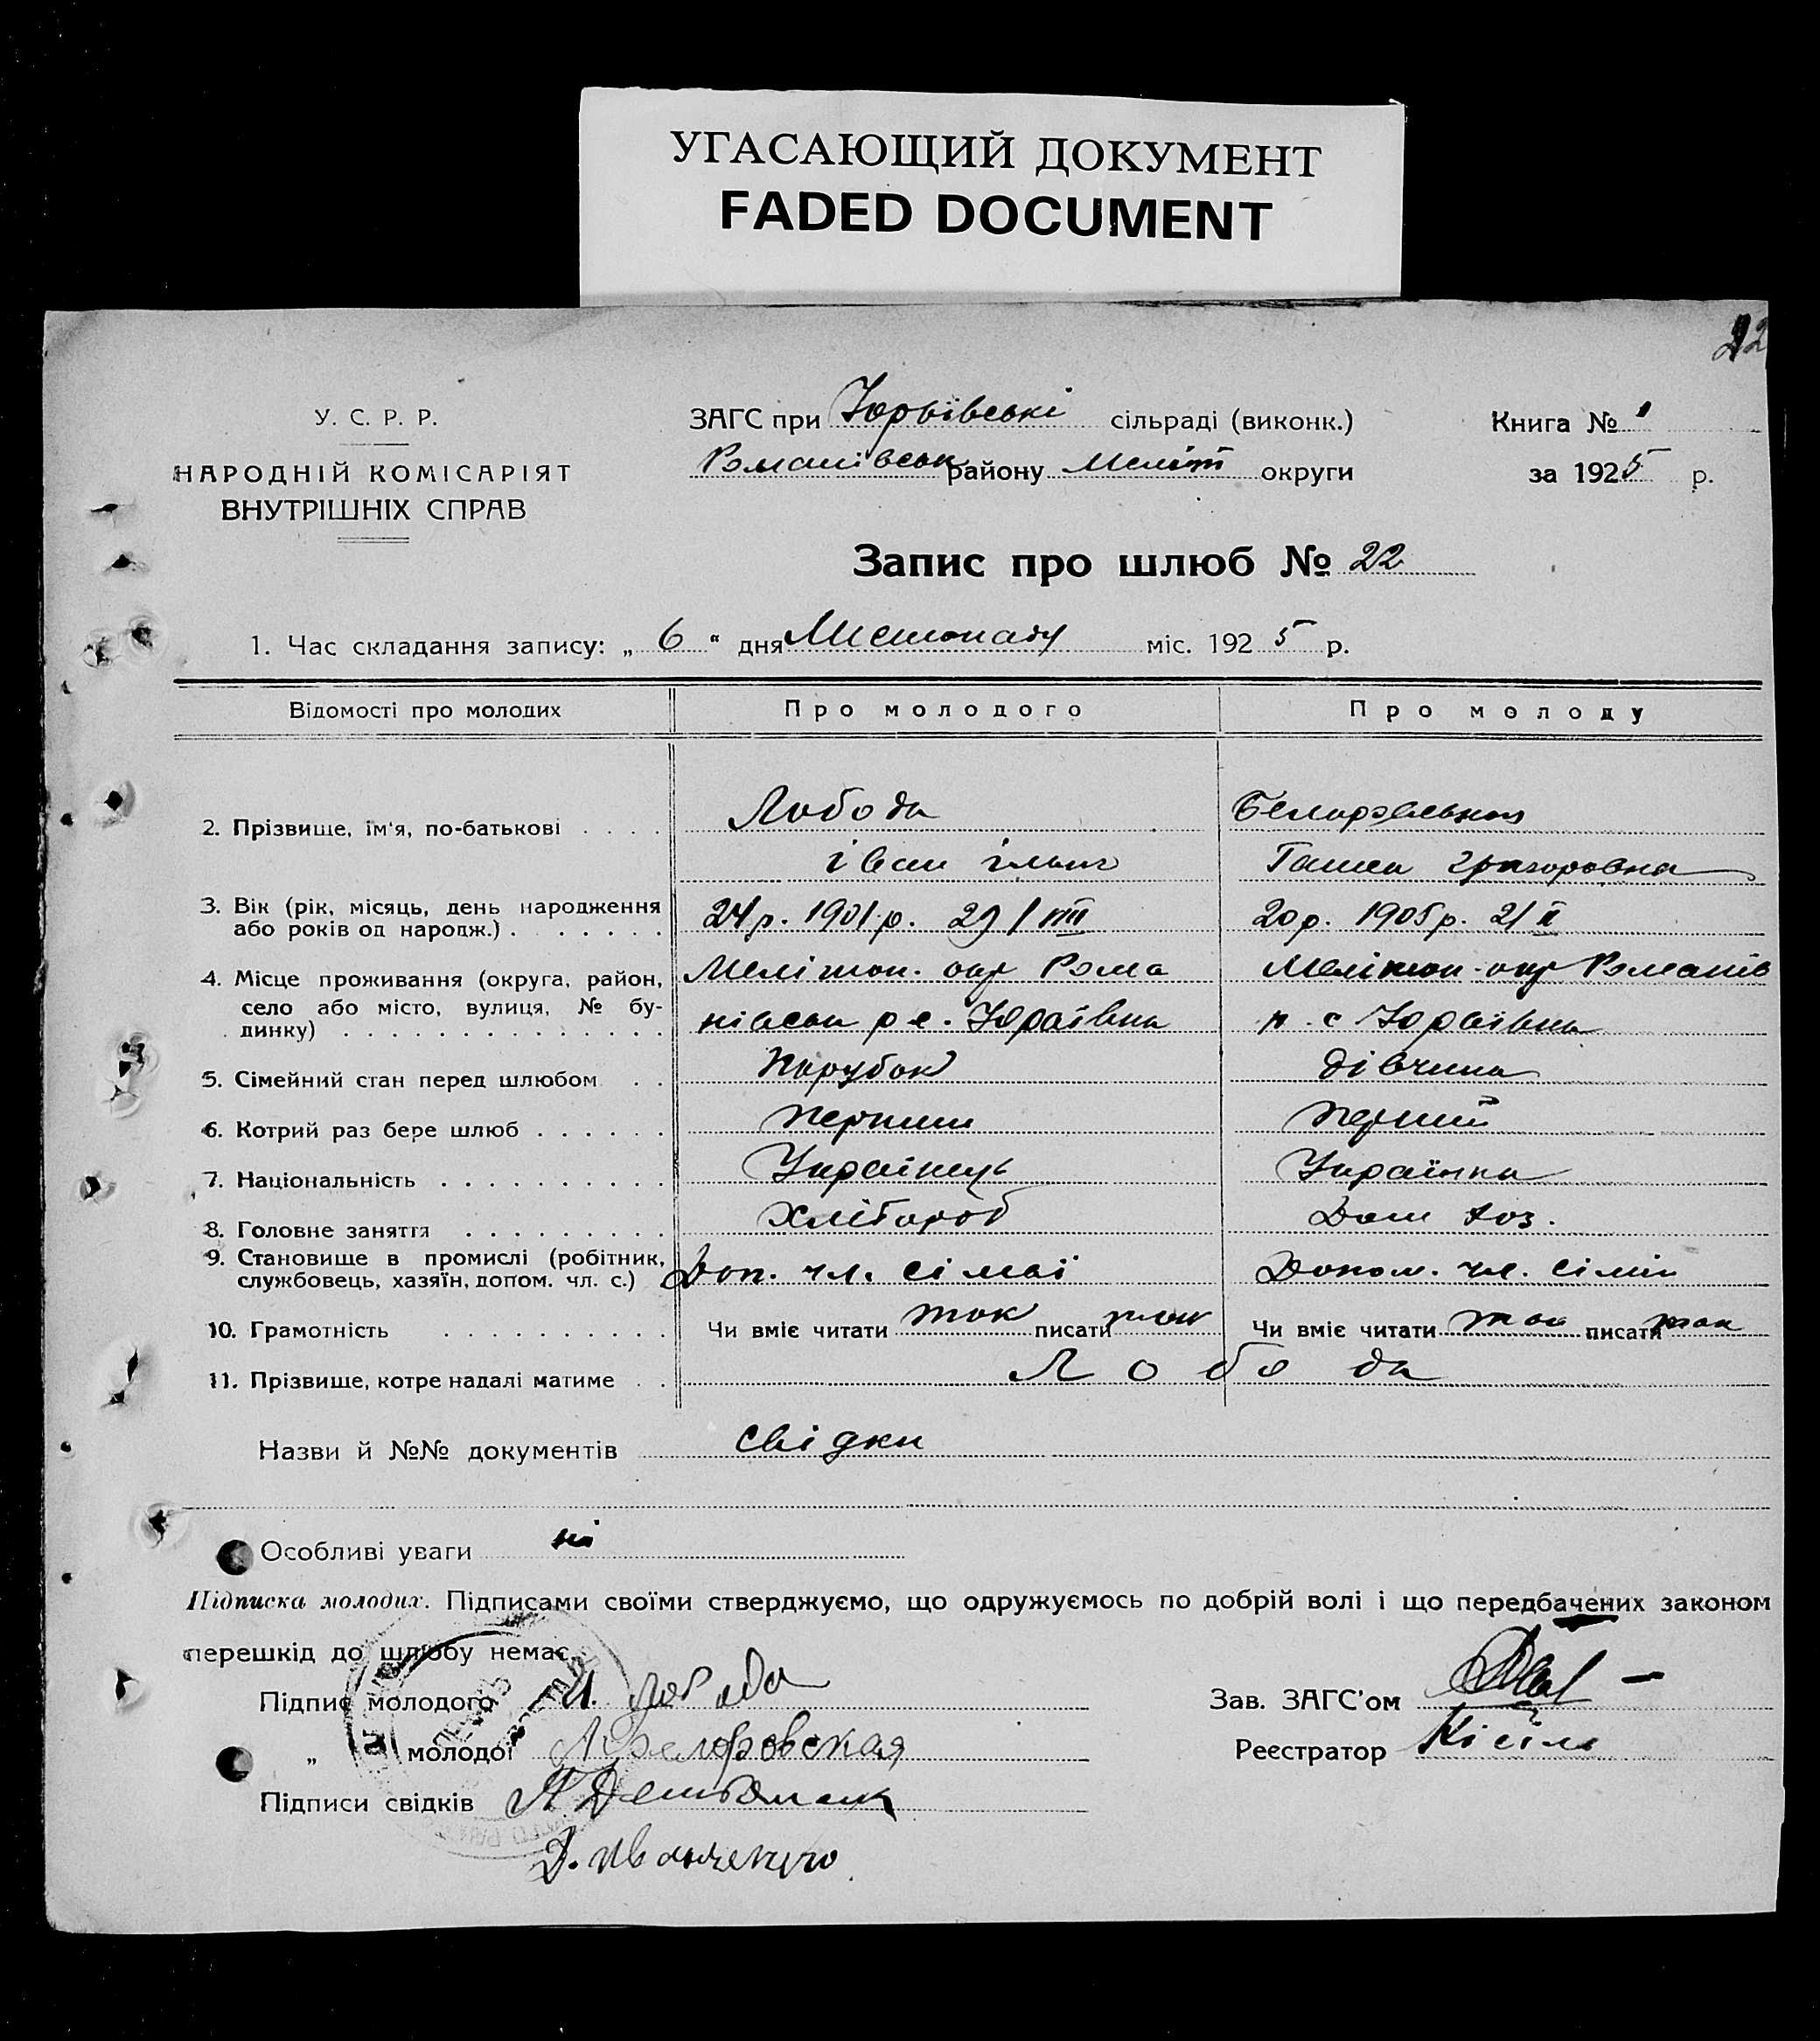 УГАСАЮЩИЙ ДОКУМЕНТ
FADED DOCUMENT
22
У. С. Р. Р.
НАРОДНІЙ КОМІСАРІЯТ
ВНУТРІШНІХ СПРАВ
ЗАГС при Юрьівські сільраді (виконк.)
Романівськ району Меліт округи
Книга № 1
за 1925 р.
Запис про шлюб № 22
1. Час складання запису: „ 6 “ дня Листопаду міс. 1925 р.
Відомості про молодих
Про молодого
Про молоду
2. Прізвище, ім'я, по-батькові
Лобода
іван ільич
Ганна григоровна
3. Вік (рік, місяць, день народження або років од народж.)
24 р. 1901 р. VIII
20 р. 1905 р. 21 II
4. Місце проживання (округа, район, село або місто, вулиця, № будинку)
Мелітоп. окр Рома
нівськ р с. Юраївка
Мелітоп. окр Романів
р. с Юраївка
5. Сімейний стан перед шлюбом
Парубок
дівчина
6. Котрий раз бере шлюб
перший
перший
7. Національність
Українець
Українка
8. Головне заняття
Хлібороб
Дом хоз.
9. Становище в промислі (робітник, службовець, хазяїн, допом. чл. с.)
Доп. чл. сімьї
Допом. чл. сімії
10. Грамотність
Чи вміє читати так писати так
Чи вміє читати так писати так
11. Прізвище, котре надалі матиме
Лобода
Назви й №№ документів свідки
Особливі уваги ні
Підписка молодих. Підписами своїми стверджуємо, що одружуємось по добрій волі і що передбачених законом
перешкід до шлюбу немає.
Підпис молодого И. Лобода
„ молодої
Підписи свідків
Зав. ЗАГС'ом
Реєстратор